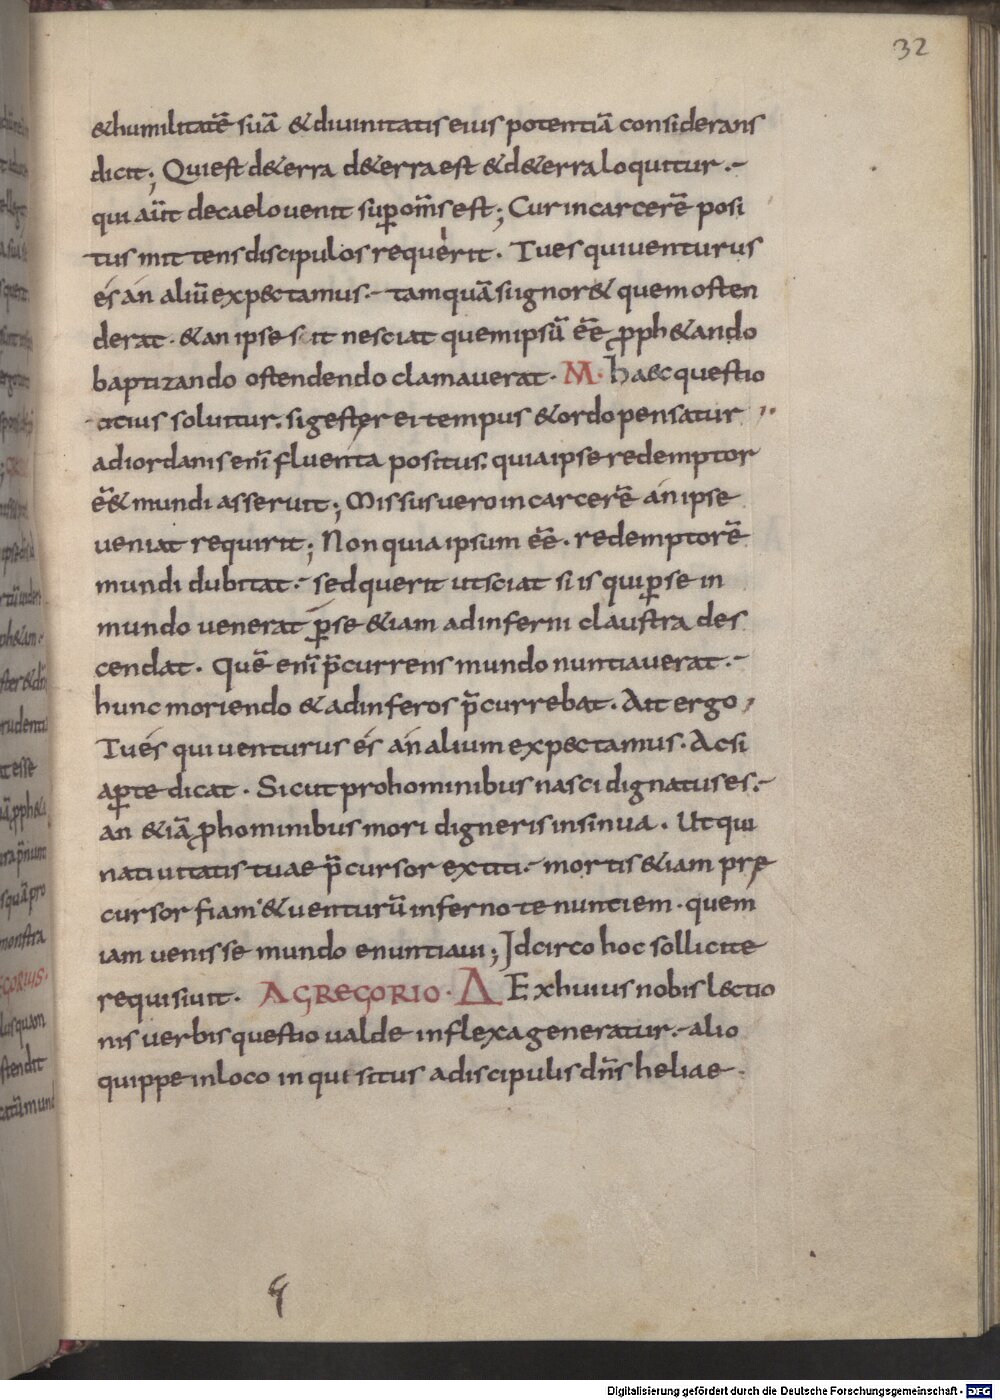 32
&humilitatē suā &diuinitatis eius potentiā considerans
dicit; Qui est d&erra d&erra est &d&erra loquitur.
qui aūt de caelo uenit sup om̄s est; Cur in carcerē posi
tus mittens discipulos requerit. Tu es qui uenturus
és án aliū expectamus. tamquā si ignor& quem osten
derat. &an ipse sit nesciat quem ipsū eē̄ pph&ando
baptizando ostendendo clamauerat. M. haec questio
citius soluitur. si gestę rei tempus &ordo pensatur
ad iordanis enī fluenta positus. quia ipse redemptor
eē̄& mundi asseruit; Missus uero in carcerē án ipse
ueniat requirit; Non quia ipsum eē̄. redemptorē
mundi dubitat. sed querit ut sciat si is qui p se in
mundo uenerat p se &iam ad inferni claustra des
cendat. Quē enī p̄currens mundo nuntiauerat.
hunc moriendo &ad inferos p̄currebat. Ait ergo
Tu és qui uenturus és án alium expectamus. Ac si
apte dicat. Sicut pro hominibus nasci dignatus es.
an &iā p hominibus mori digneris insinua. Ut qui
natiuitatis tuae p̄cursor extiti. mortis &iam pre
cursor fiam &uenturū inferno te nuntiem. quem
iam uenisse mundo enuntiaui; Idcirco hoc sollicite
requisiuit. A GREGORIO. Δ Ex huius nobis lectio
nis uerbis questio ualde inflexa generatur. alio
quippe in loco inquisitus a discipulis dn̄s heliae.
Digitalisierung gefördert durch die Deutsche Forschungsgemeinschaft - DFG